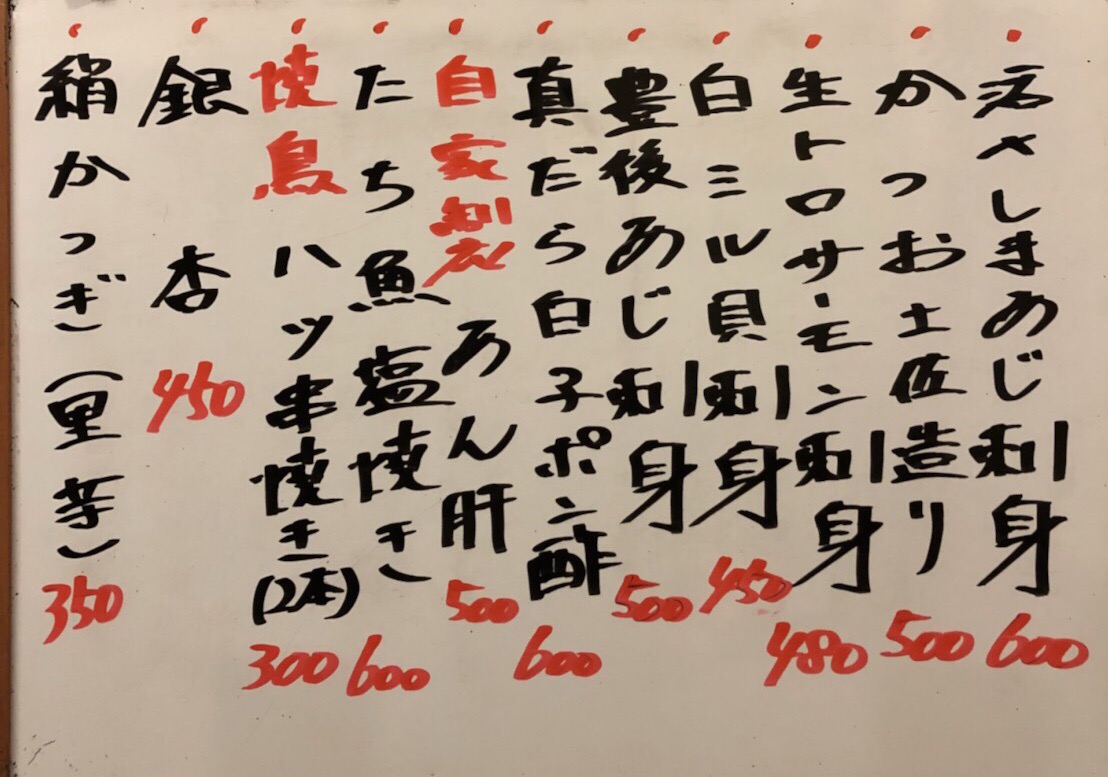 活〆しまあじ刺身 600
かつお土佐造り 500
生トロサーモン刺身 480
白ミル貝刺身 450
豊後あじ刺身 500
真だら白子ポン酢 600
自家製あん肝 500
たち魚塩焼き 600
焼鳥ハツ串焼き(2本) 300
銀杏 450
絹かつぎ(里芋) 350